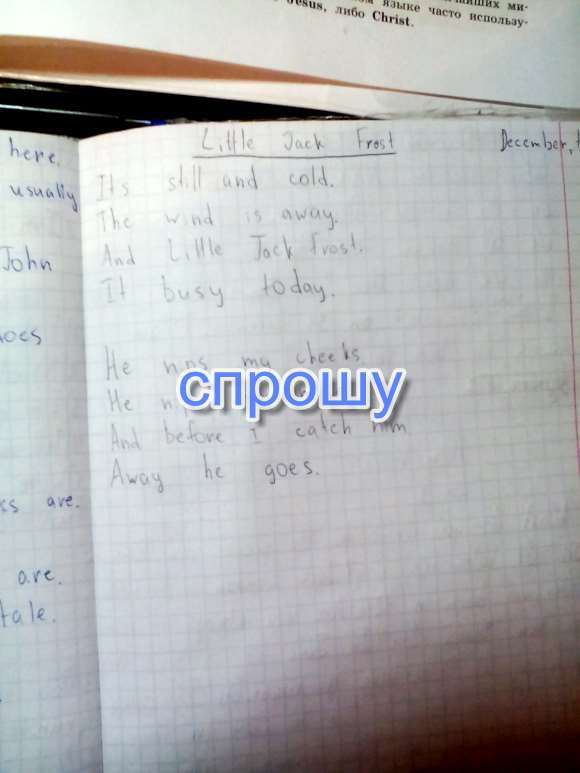 языке часто использу-
Jesus, либо Christ.
Little Jack Frost
December,
here.
usually
John
are.
are.
tale.
Its still and cold.
The wind is away.
And Little Jack Frost.
It busy today.
He nips my cheeks.
He
спрошу
And before I catch him
Away he goes.